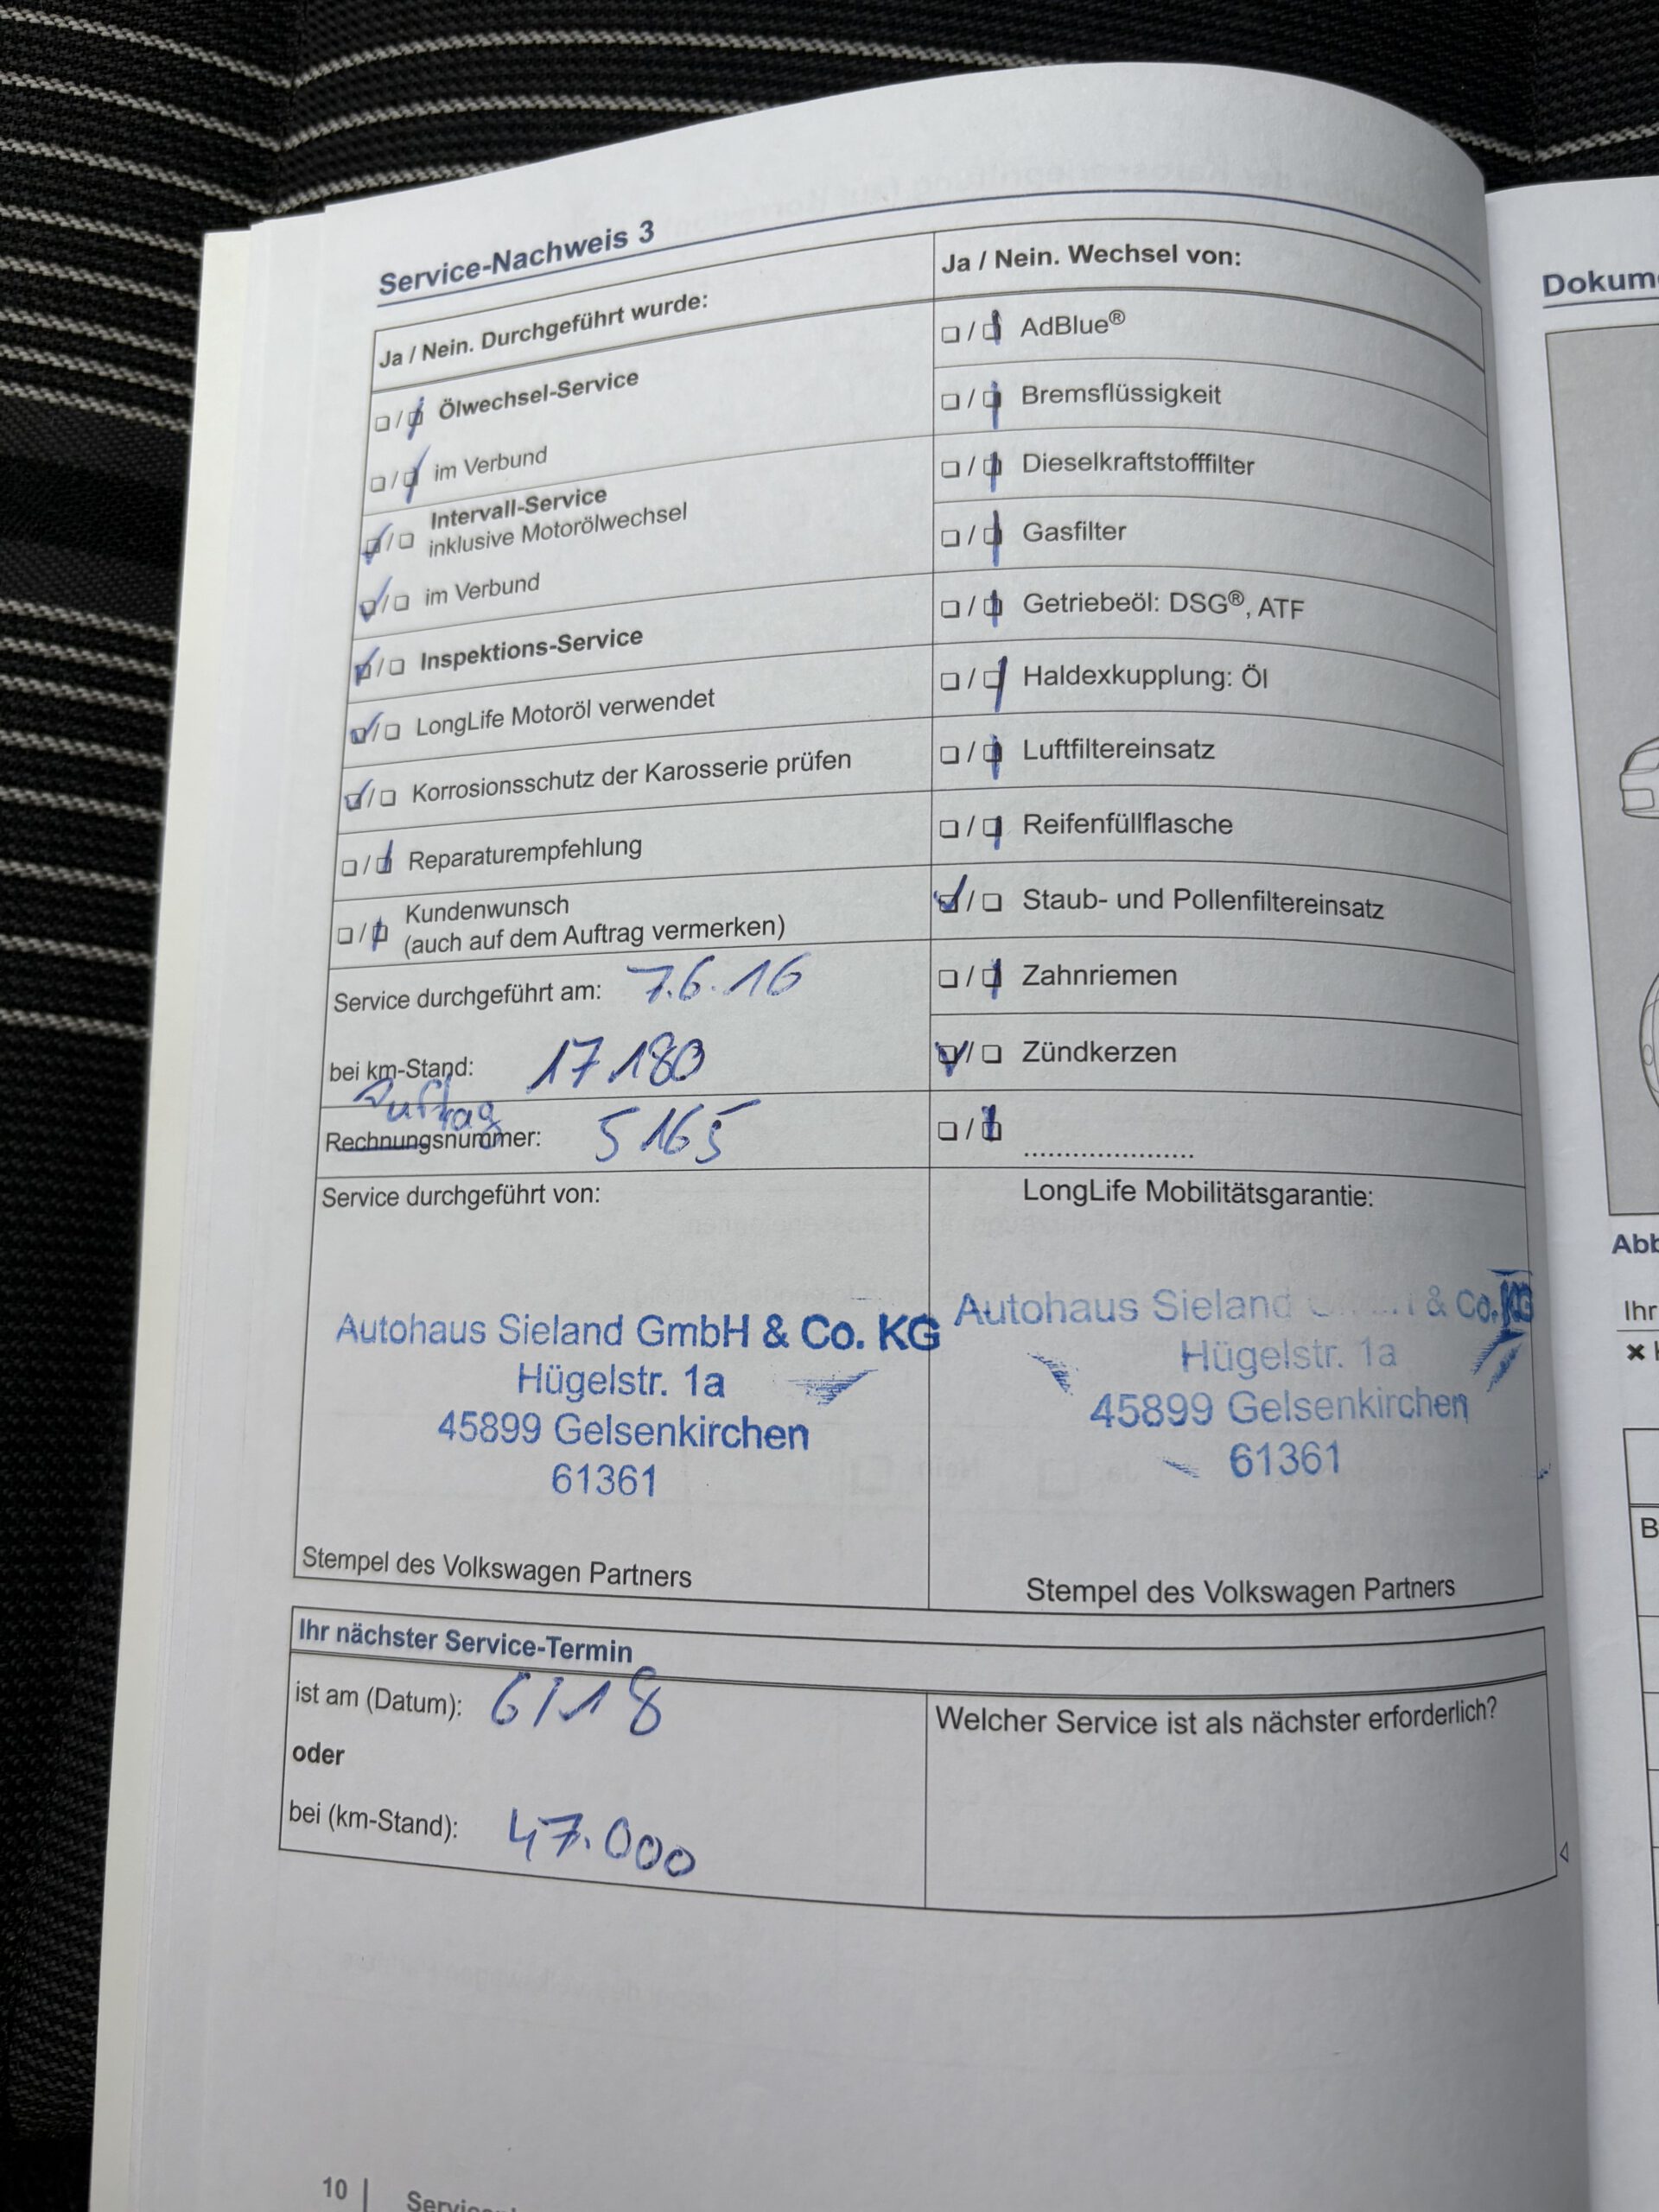 Service-Nachweis 3
Ja / Nein. Durchgeführt wurde:
☐/☑ Ölwechsel-Service
☐/☑ im Verbund
☑/☐ Intervall-Service
inklusive Motorölwechsel
☑/☐ im Verbund
☑/☐ Inspektions-Service
☑/☐ LongLife Motoröl verwendet
☑/☐ Korrosionsschutz der Karosserie prüfen
☐/☑ Reparaturempfehlung
☐/☑ Kundenwunsch
(auch auf dem Auftrag vermerken)
Service durchgeführt am: 7.6.16
bei km-Stand: 17.180
Auftrag
Rechnungsnummer: 5165
Service durchgeführt von:
Autohaus Sieland GmbH & Co. KG
Hügelstr. 1a
45899 Gelsenkirchen
61361
Stempel des Volkswagen Partners
Ja / Nein. Wechsel von:
☐/☑ AdBlue®
☐/☑ Bremsflüssigkeit
☐/☑ Dieselkraftstofffilter
☐/☑ Gasfilter
☐/☑ Getriebeöl: DSG®, ATF
☐/☑ Haldexkupplung: Öl
☐/☑ Luftfiltereinsatz
☐/☑ Reifenfüllflasche
☑/☐ Staub- und Pollenfiltereinsatz
☐/☑ Zahnriemen
☑/☐ Zündkerzen
☐/☑ .....................
LongLife Mobilitätsgarantie:
Autohaus Sieland & Co. KG
Hügelstr. 1a
45899 Gelsenkirchen
61361
Stempel des Volkswagen Partners
Ihr nächster Service-Termin
ist am (Datum): 6/18
oder
bei (km-Stand): 47.000
Welcher Service ist als nächster erforderlich?
10
Abb
Ihr
B